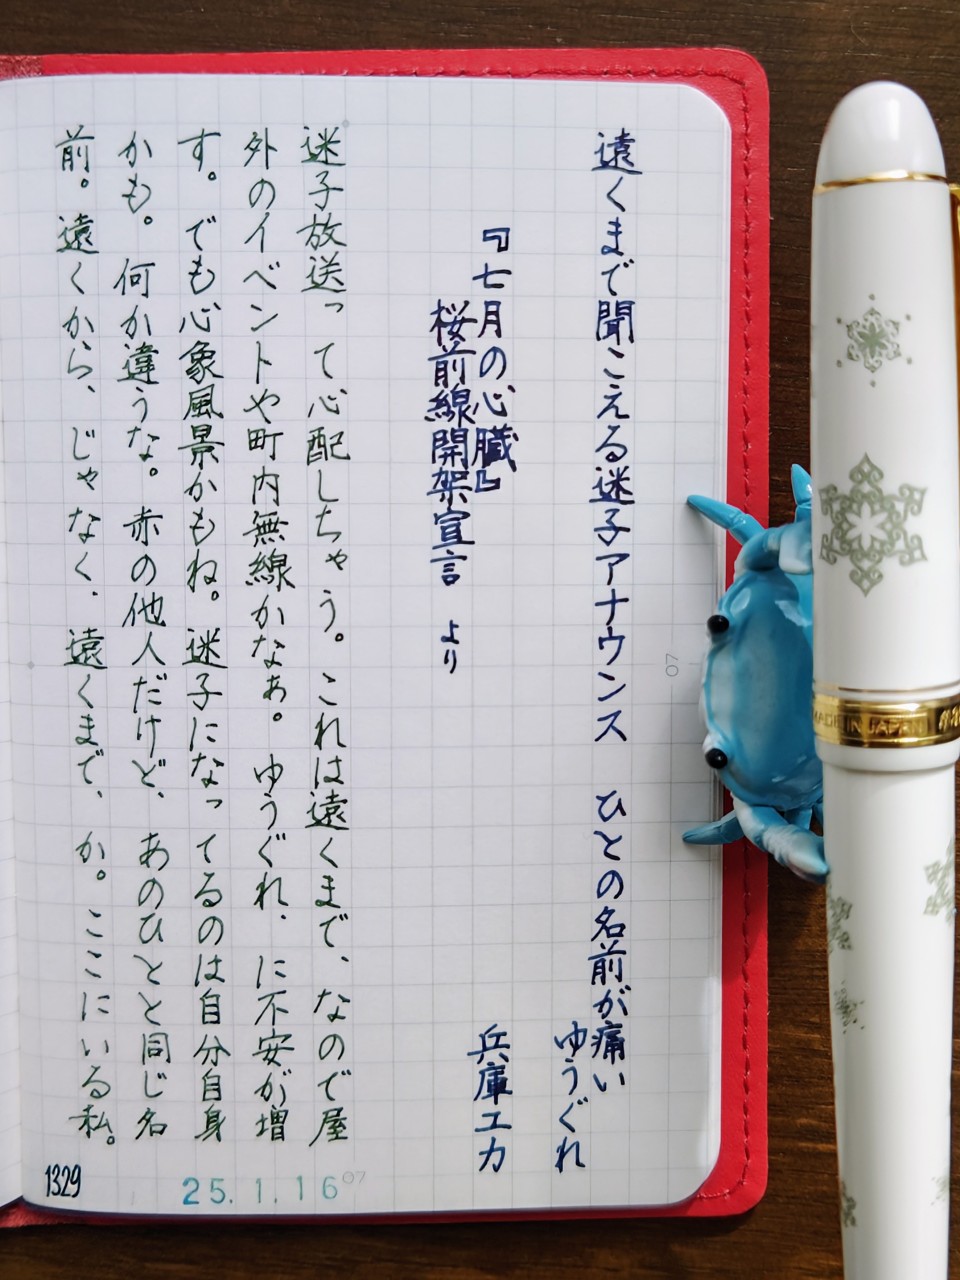 遠くまで聞こえる迷子アナウンス　ひとの名前が痛い
ゆうぐれ
『七月の心臓』
兵庫ユカ
桜前線開架宣言　より
迷子放送って心配しちゃう。これは遠くまで、なので屋
外のイベントや町内無線かなぁ。ゆうぐれ、に不安が増
す。でも心象風景かもね。迷子になってるのは自分自身
かも。何か違うな。赤の他人だけど、あのひとと同じ名
前。遠くから、じゃなく、遠くまで、か。ここにいる私。
1329
25.1.16
07
07
MADE IN JAPAN